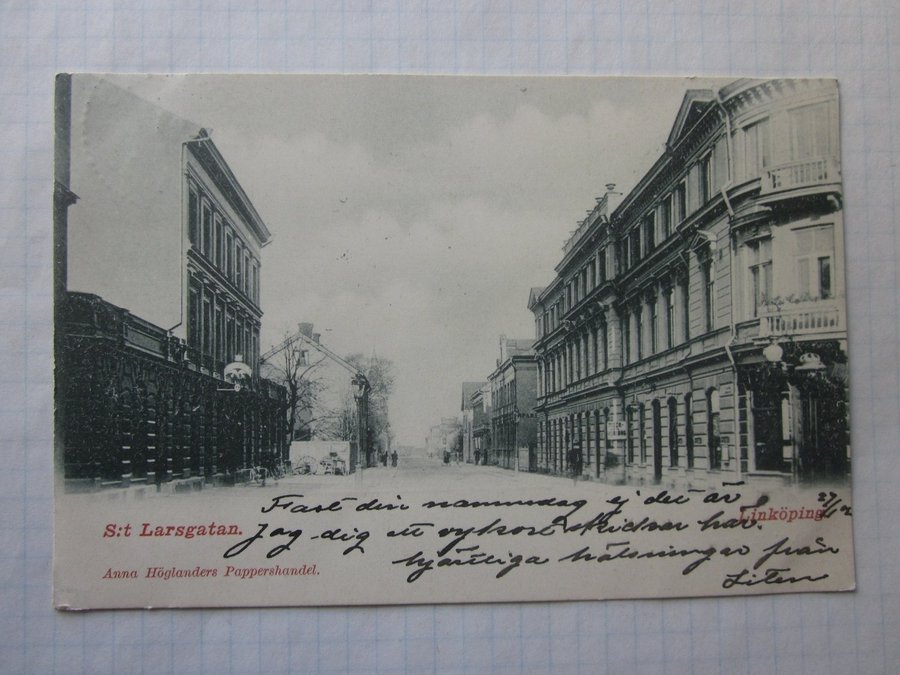 Fast din namnsdag ej det är
S:t Larsgatan.
Linköping.
Jag dig ett vykort skickar här.
hjärtliga hälsningar från
Anna Höglanders Pappershandel.
Liten